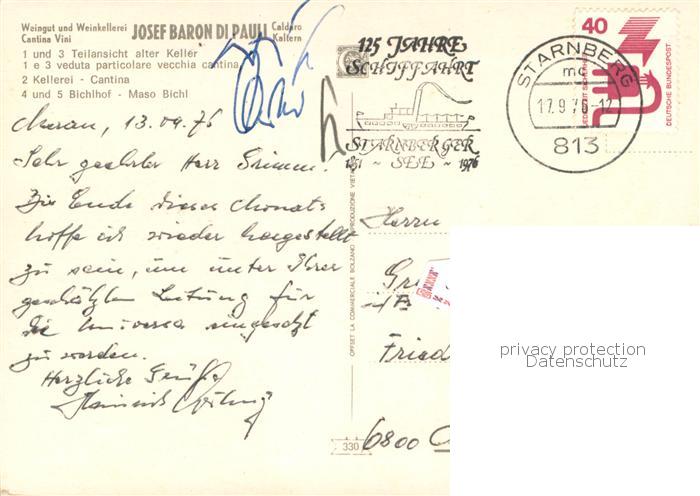 Weingut und Weinkellerei JOSEF BARON DI PAULI Caldaro
Cantina Vini Kaltern
1 und 3 Teilansicht alter Keller
1 e 3 veduta particolare vecchia cantina
2 Kellerei - Cantina
4 und 5 Bichlhof - Maso Bichl
Meran, 13.09.76
Sehr geehrter Herr Grimm.
Zu Ende dieses Monats
hoffe ich wieder hergestellt
zu sein, um unter Ihrer
geschätzten Leitung für
die Universa eingesetzt
zu werden.
Herzliche Grüße
Heinrich
125 JAHRE
SCHIFFAHRT
STARNBERGER
1851 ~ SEE ~ 1976
STARNBERG
mc
17.9.76-12
813
40
JEDERZEIT SICHERHEIT
DEUTSCHE BUNDESPOST
OFFSET LA COMMERCIALE BOLZANO
RIPRODUZIONE VIET
330
Herrn
Gri
Fried
6800
privacy protection
Datenschutz